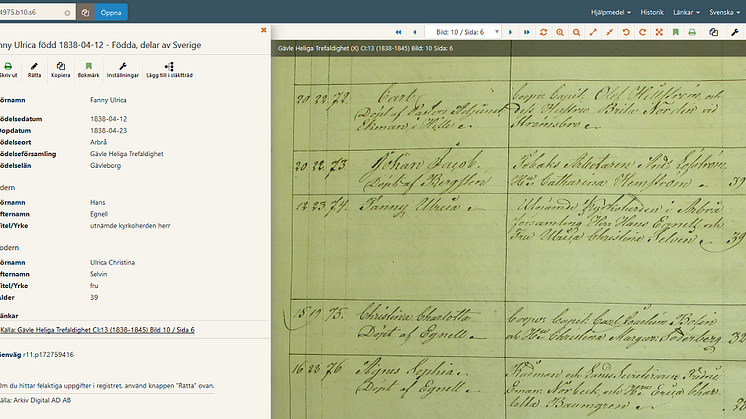 4975.b10.s6
Öppna
Hjälpmedel
Historik
Länkar
Svenska
Bild: 10 / Sida: 6
nny Ulrica född 1838-04-12 - Födda, delar av Sverige
Gävle Heliga Trefaldighet (X) CI:13 (1838-1845) Bild: 10 Sida: 6
kriv ut
Rätta
Kopiera
Bokmärk
Inställningar
Lägg till i släktträd
örnamn Fanny Ulrica
ödelsedatum 1838-04-12
opdatum 1838-04-23
ödelseort Arbrå
ödelseförsamling Gävle Heliga Trefaldighet
ödelselän Gävleborg
dern
örnamn Hans
fternamn Egnell
itel/Yrke utnämde kyrkoherden herr
odern
örnamn Ulrica Christina
fternamn Selvin
itel/Yrke fru
lder 39
nkar
Källa: Gävle Heliga Trefaldighet CI:13 (1838-1845) Bild 10 / Sida 6
enväg r11.p172759416
Om du hittar felaktiga uppgifter i registret, använd knappen "Rätta" ovan.
älla: Arkiv Digital AD AB
20 22 72. Carl
Döpt af Pastors Adjunct
Ekman i Hille
Corpor. Capit. Olof
och
dess Hustru Brita Norden vid
Strömsbro
20 22 73 Johan Jacob.
Döpt af Bergsten
Tobaks Arbetaren
Löfström
Hu Catharina Hemström 39
12 23 74. Fanny Ulrica
Utnämde Kyrkoherden i Arbrå
församling Herr Hans Egnell och
Fru Ulrica Christina Selvin 39
15 19 75. Christina Charlotta
Döpt af Egnell
Corpor. Capit. Carl
Christina Margar. Söderberg 32
16 22 76. Agnes Sophia
Döpt af Egnell
och
Erica Char-
lotta Baumgren